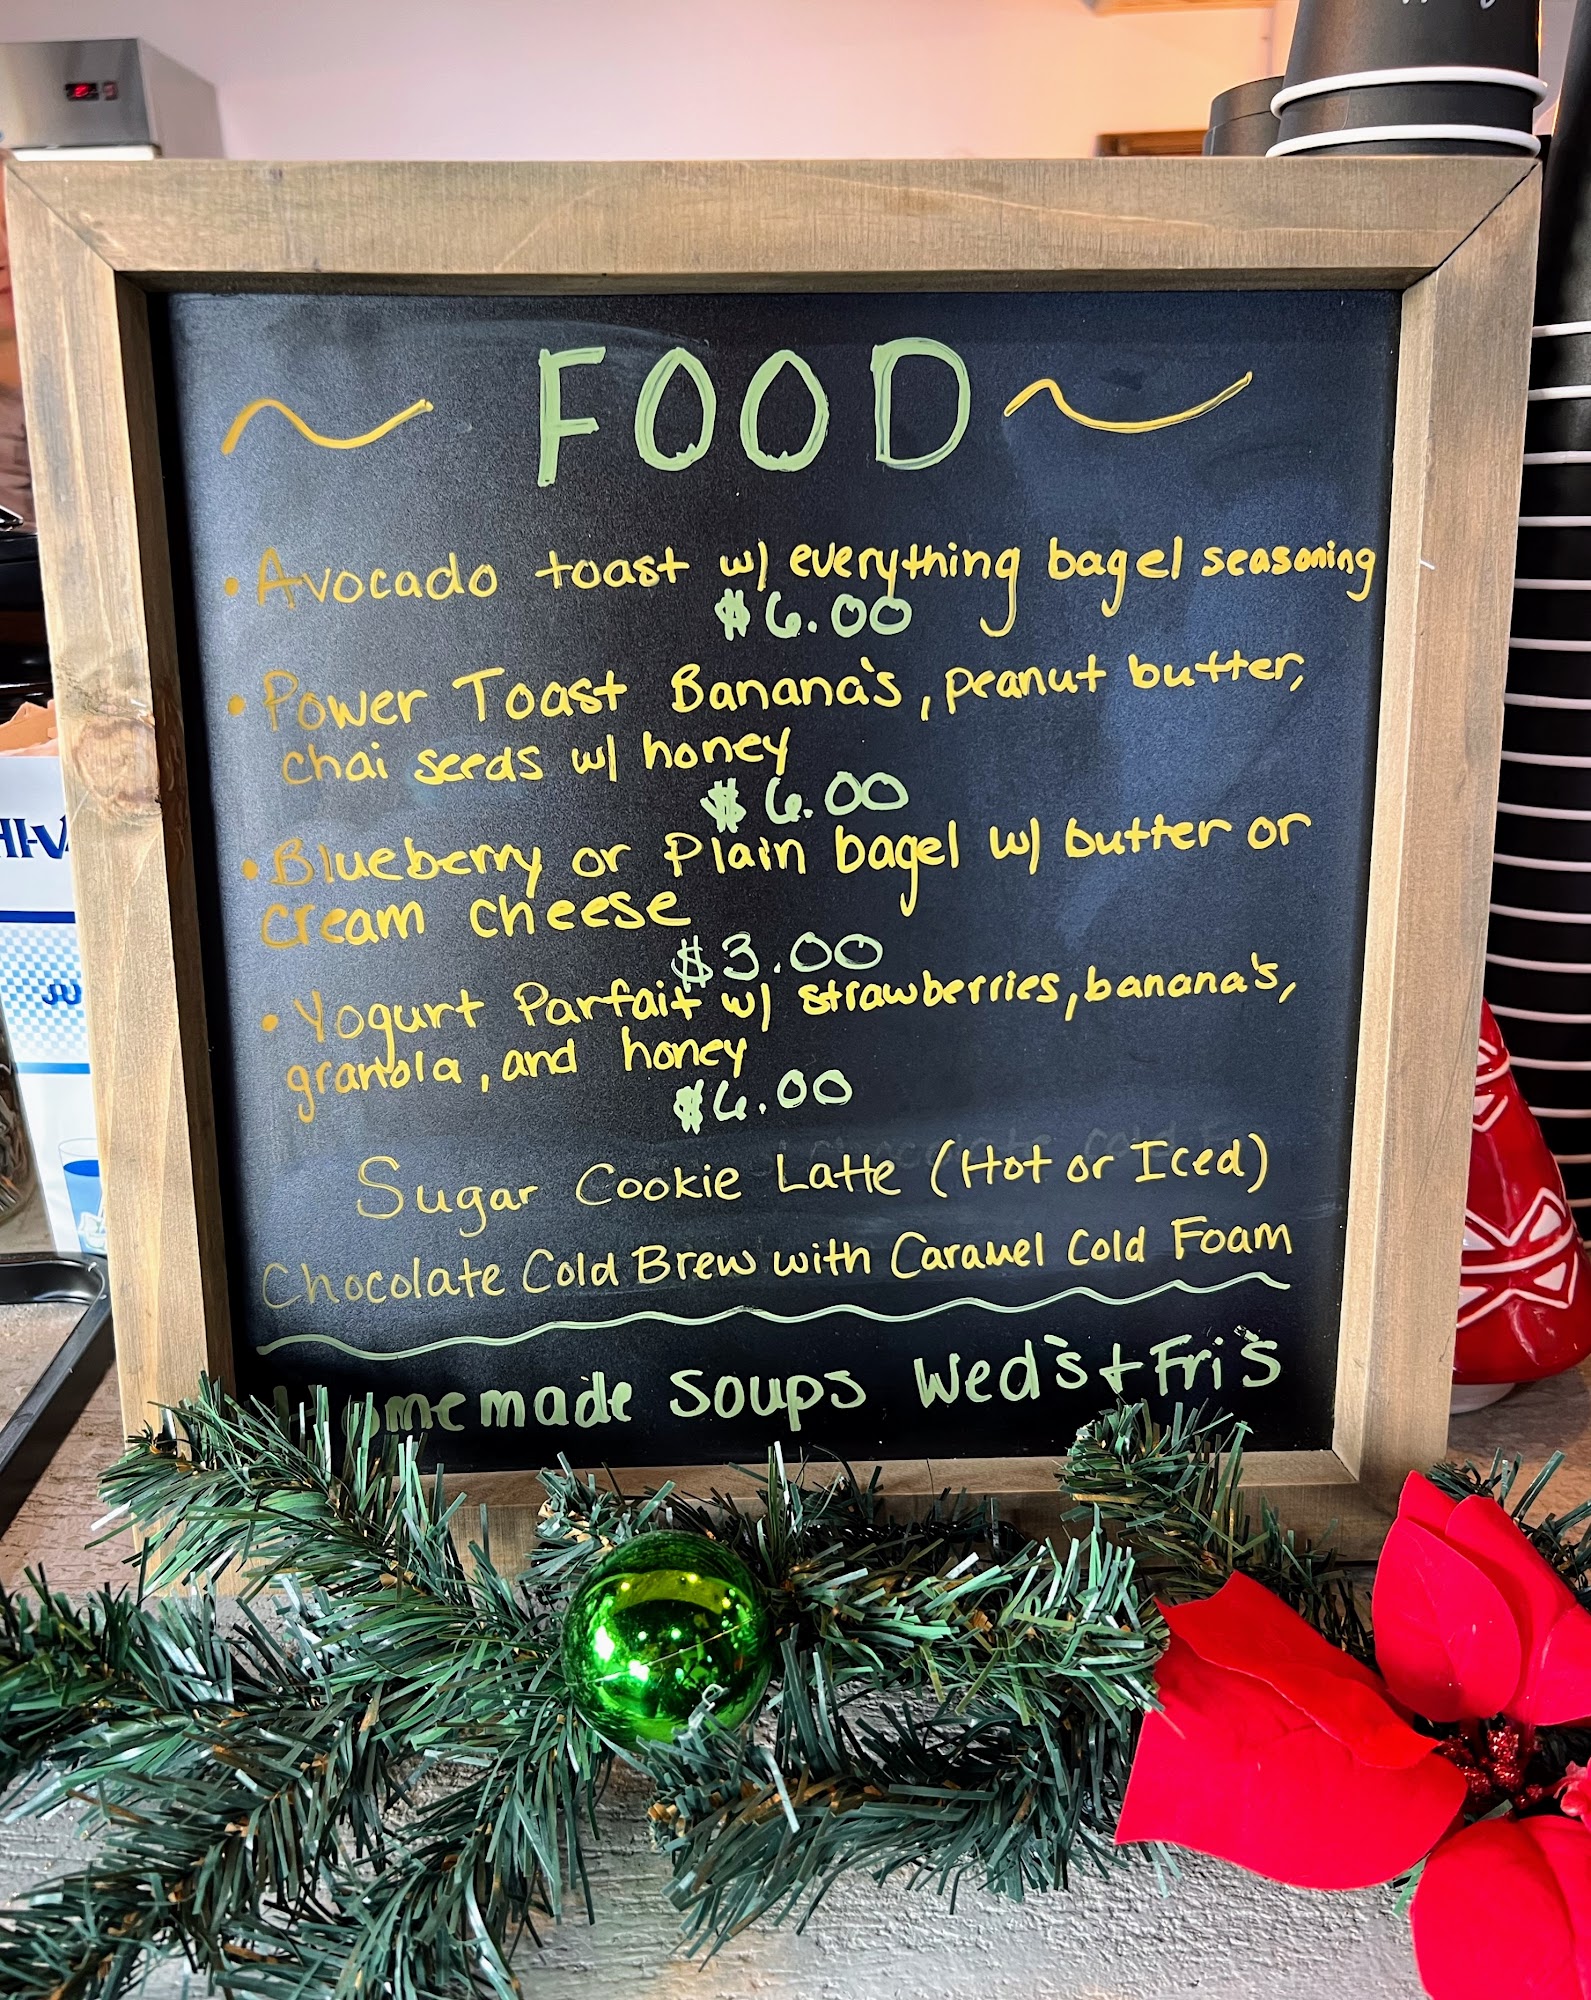 ~ FOOD ~
• Avocado toast w/ everything bagel seasoning
$6.00
• Power Toast Banana's, peanut butter,
chai seeds w/ honey
$6.00
• Blueberry or Plain bagel w/ butter or
cream cheese
$3.00
• Yogurt Parfait w/ strawberries, banana's,
granola, and honey
$6.00
Sugar Cookie Latte (Hot or Iced)
Chocolate Cold Brew with Caramel Cold Foam
Homemade Soups Wed's + Fri's
HI-V
JU